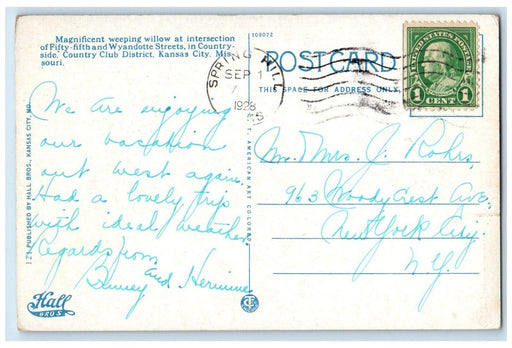 Magnificent weeping willow at intersection
of Fifty-fifth and Wyandotte Streets, in Country-
side, Country Club District, Kansas City, Mis-
souri.
We are enjoying
our vacation
out west again.
Had a lovely trip
with ideal weather.
Regards from
Binney and Hermine
121 PUBLISHED BY HALL BROS., KANSAS CITY, MO.
Hall
BROS
108072
POST CARD
THIS SPACE FOR ADDRESS ONLY
SPRING HILL
SEP 1
1928
UNITED STATES POSTAGE
1 CENT 1
T. AMERICAN ART COLORED
Mr. & Mrs. J. Rohrs,
963 Woody Crest Ave.,
New York City.
N.Y.